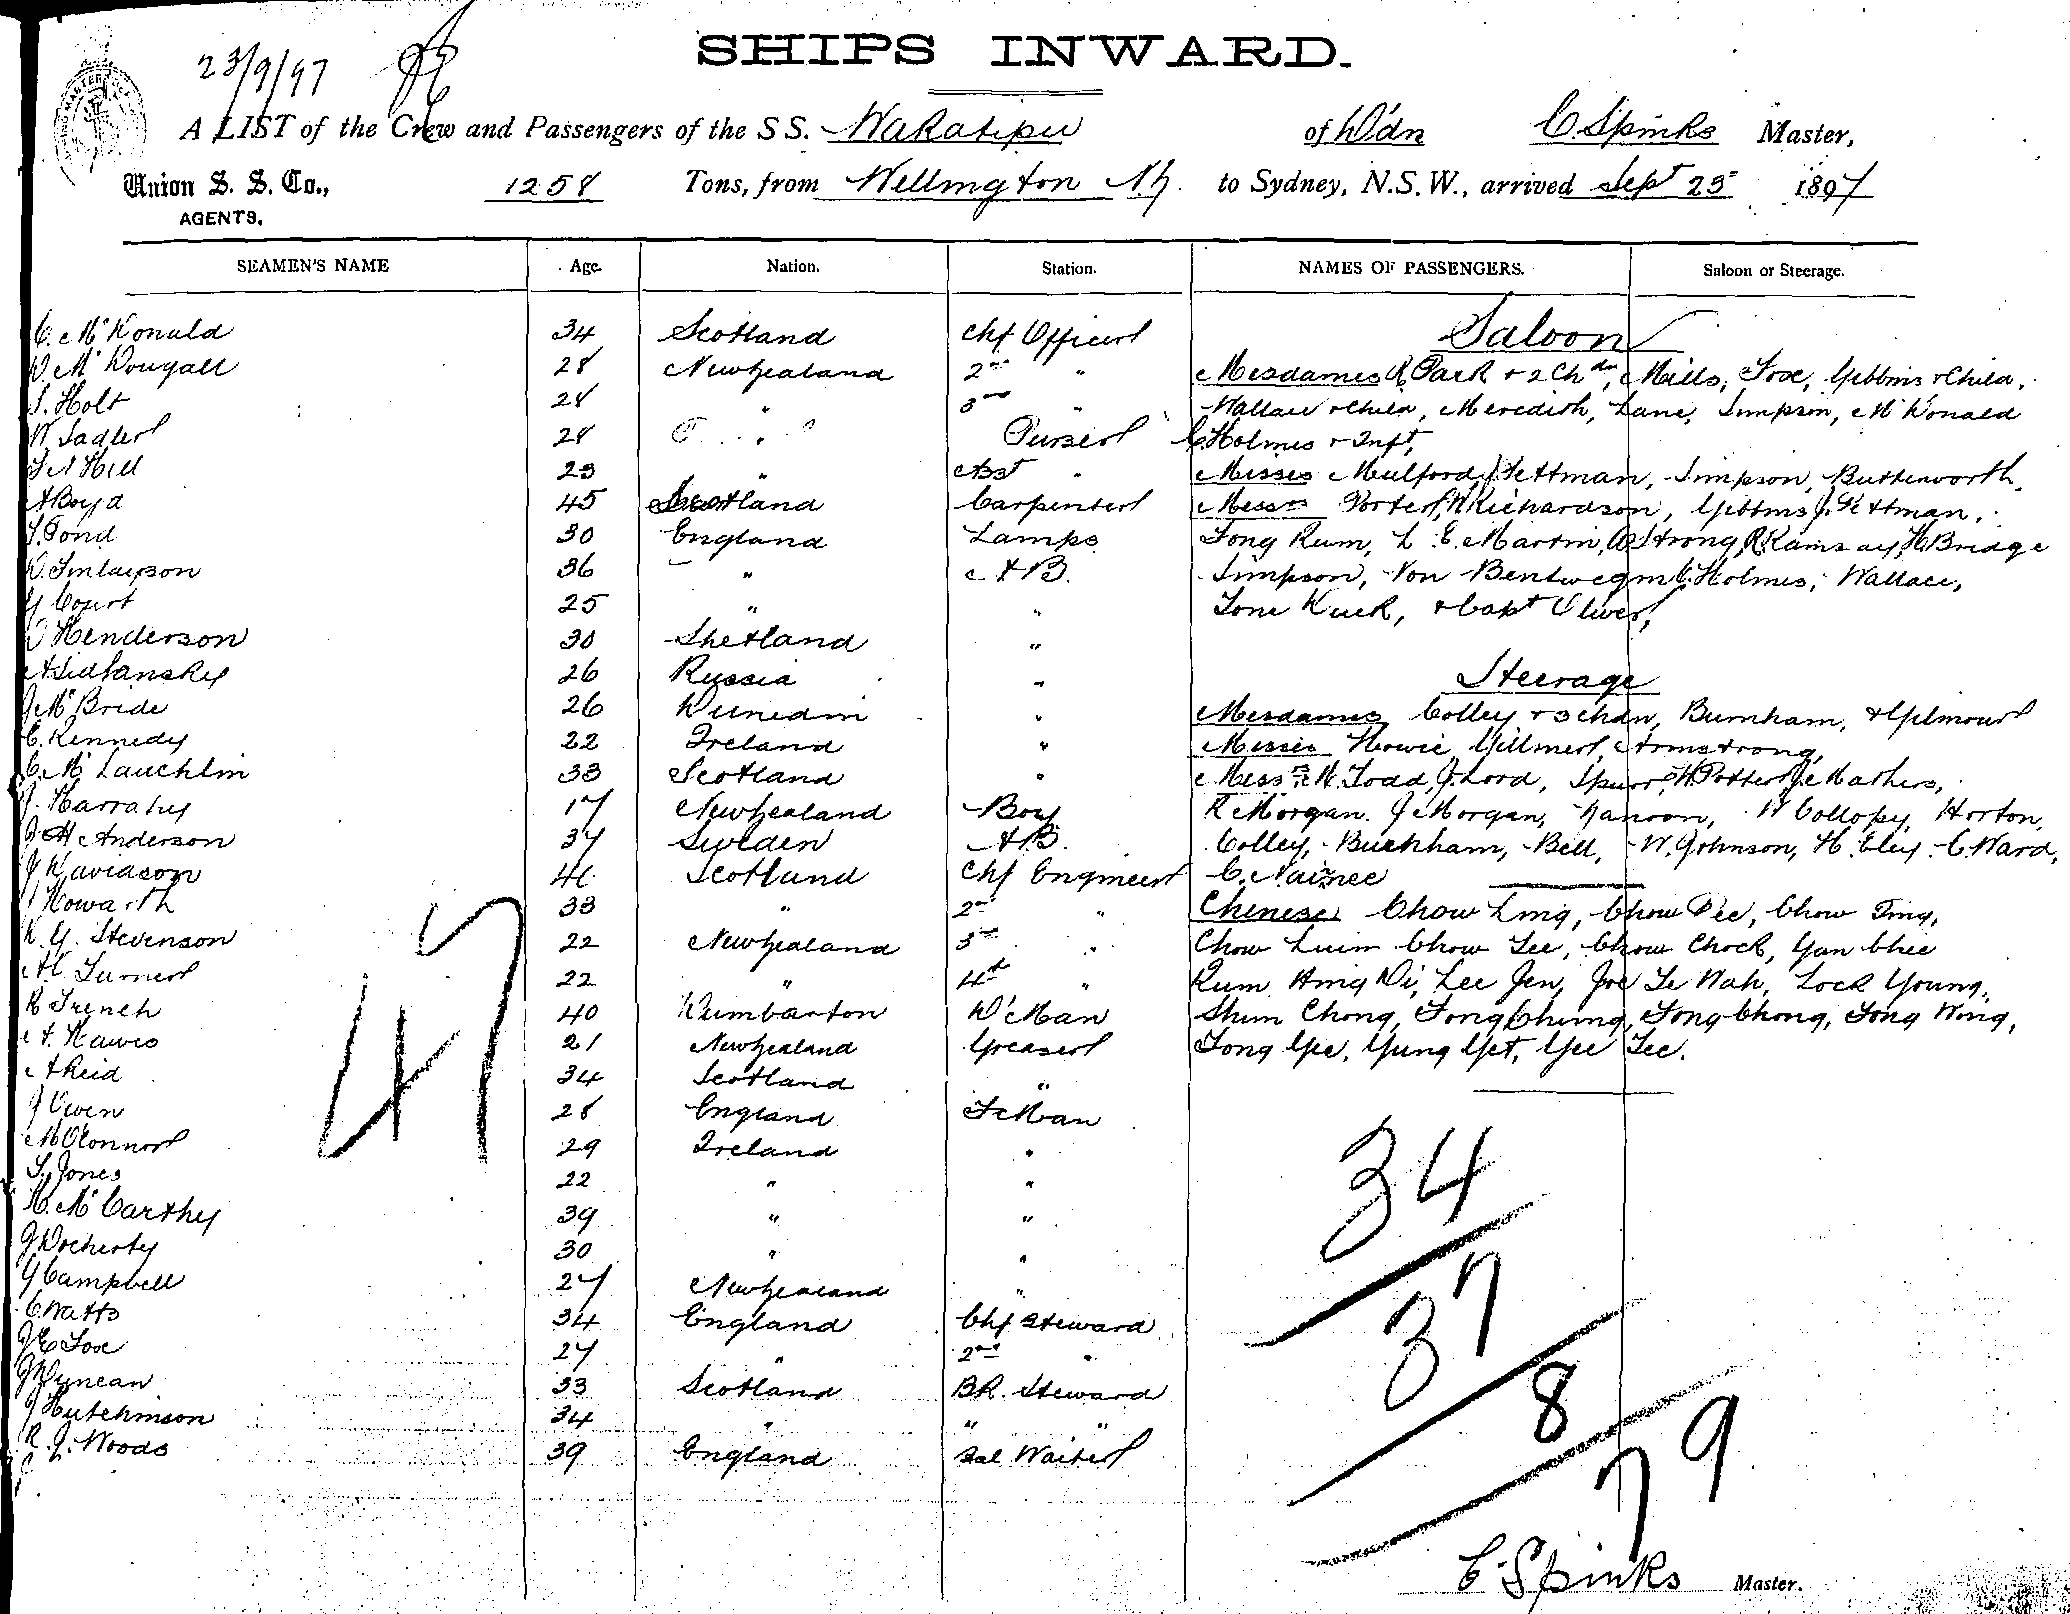 23/9/97
SHIPS INWARD.
A LIST of the Crew and Passengers of the S S. Wakatipu of D'dn C. Spinks Master,
Union S. S. Co., 1258 Tons, from Wellington N.Z. to Sydney, N.S.W., arrived Sept 23 1897
AGENTS.
SEAMEN'S NAME Age. Nation. Station. NAMES OF PASSENGERS. Saloon or Steerage.
C. McDonald 34 Scotland Chf Officer
D McDougall 28 New Zealand 2nd "
S. Holt 28 " 3rd "
W Sadler 28 " Purser
Hill 23 " Asst "
A Boyd 45 Scotland Carpenter
S. Pond 30 England Lamps
D. Finlayson 36 " A B.
Court 25 " "
Henderson 30 Shetland "
A Sidlansky 26 Russia "
J McBride 26 Dunedin "
C. Kennedy 22 Ireland "
C. McLauchlin 33 Scotland "
J. Harraby 17 New Zealand Boy
J A Anderson 37 Sweden A B.
J Davidson 41 Scotland Chf Engineer
Howarth 33 " 2nd "
R. G. Stevenson 22 New Zealand 3rd "
Turner 22 " 4th "
R French 40 Dumbarton D'Man
A. Hawes 21 New Zealand Greaser
A Reid 34 Scotland "
J Owen 28 England F'Man
M O'Connor 29 Ireland "
S. Jones 22 " "
McCarthy 39 " "
J Docherty 30 " "
G Campbell 27 New Zealand "
C Watts 34 England Chf Steward
J E Foxe 27 " 2nd "
J Duncan 33 Scotland BR. Steward
J Hutchinson 34 " " "
R. J. Woods 39 England Sal Waiter
47
Saloon
Mesdames R Park + 2 Chdn, Mills, Foxe, Gibbins + Child,
Wallace + Child, Meredith, Lane, Simpson, McDonald
C. Holmes + Inft,
Misses Mulford, Kettman, Simpson, Butterworth,
Messrs Porter, W Richardson, Gibbins, J. Kettman,
Fong Kum, L. E. Martin, Strong, R Ramsay, H Bridge
Simpson, Von Bentwegm, C. Holmes, Wallace,
Kuck, + Capt Oliver,
Steerage
Mesdames Colley + 3 chdn, Burnham, + Gilmour
Misses Howie, Gillmer, Armstrong,
Messrs M. Todd, J. Lord, Spurr, W. Potter, J. Mathers,
R Morgan. J Morgan, W Collopy, Horton,
Colley, Buckham, Bell, W. Johnson, H. Eley. C. Ward,
C. Naisnee
Chinese Chow Ling, Chow Dee, Chow Ting,
Chow Luim Chow Lee, Chow Chock, Yan Chee
Kum Hing Di, Lee Jen, Joe Le Wah, Lock Young,
Shum Chong, Fong Chung, Fong Chong, Fong Wing,
Fong Gee, Yung Yet, Yee Lee.
34
37
8
79
C. Spinks Master.